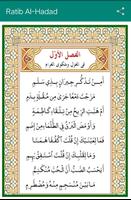 Ratib Al-Hadad
الفصل الأول
في الغزل وشكوى الغرام
أمن تذكر جيران بذي سلم
مزجت دمعا جرى من مقلة بدم
أم هبت الريح من تلقاء كاظمة
وأومض البرق في الظلماء من إضم
فما لعينيك إن قلت اكففا همتا
وما لقلبك إن قلت استفق يهم
أيحسب الصب أن الحب منكتم
ما بين منسجم منه ومضطرم